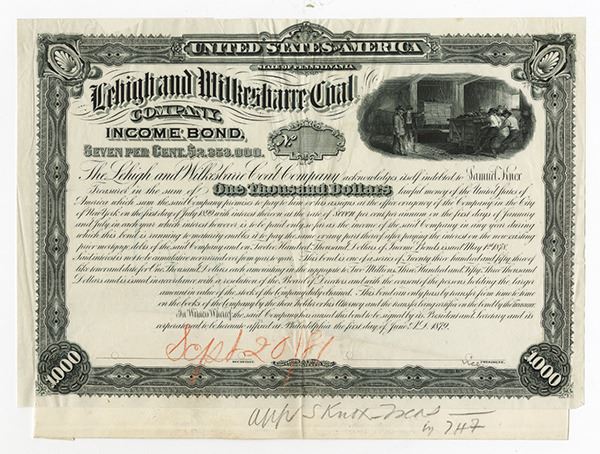 UNITED STATES OF AMERICA
STATE OF PENNSYLVANIA
Lehigh and Wilkesbarre Coal
COMPANY.
INCOME BOND,
SEVEN PER CENT. $2,353,000.
No
The Lehigh and Wilkesbarre Coal Company acknowledges itself indebted to Samuel Knox
Treasurer in the sum of One Thousand Dollars lawful money of the United States of
America which sum the said Company promises to pay to him or his assigns at the office or agency of the Company in the City
of New York on the first day of July with interest thereon at the rate of Seven per cent per annum on the first days of January
and July in each year which interest however is to be paid only so far as the income of the said Company in any year during
which this bond is running to maturity enables it to pay the same or any part thereof after paying the interest on the now existing
prior mortgage debts of the said Company and on Twelve Hundred Thousand Dollars of Income Bonds issued May 1st 1878.
Said interest is not to be cumulative or carried over from year to year. This bond is one of a series of Twenty three hundred and fifty three of
like tenor and date for One Thousand Dollars each amounting in the aggregate to Two Millions Three Hundred and Fifty Three Thousand
Dollars and is issued in accordance with a resolution of the Board of Directors and with the consent of the persons holding the larger
amount in value of the stock of the Company duly obtained. This Bond can only pass by transfer from time to time
on the books of the Company by the then holder or his Attorney and the transfer being certified on the bond by the Treasurer
In Witness Whereof the said Company has caused this bond to be signed by its President and Secretary and its
corporate seal to be hereunto affixed at Philadelphia the first day of June A.D. 1879.
Sept 20/81
SECRETARY.
Vice PRESIDENT.
1000
1000
app S Knox - Treas
in 7HF